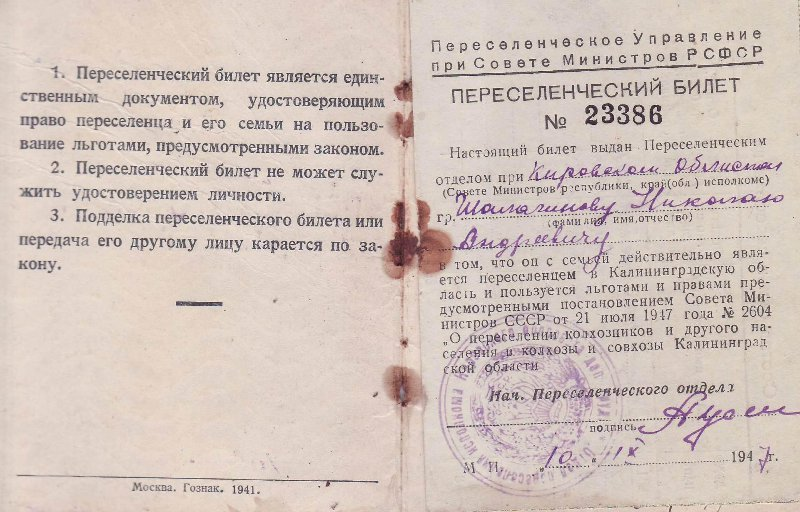 1. Переселенческий билет является един-
ственным документом, удостоверяющим
право переселенца и его семьи на пользо-
вание льготами, предусмотренными законом.
2. Переселенческий билет не может слу-
жить удостоверением личности.
3. Подделка переселенческого билета или
передача его другому лицу карается по за-
кону.
Москва. Гознак. 1941.
Переселенческое Управление
при Совете Министров РСФСР
ПЕРЕСЕЛЕНЧЕСКИЙ БИЛЕТ
№ 23386
Настоящий билет выдан Переселенческим
отделом при Кировском Областном
(Совете Министров республики, край(обл.) исполкоме)
гр. Шалагинову Николаю
(фамилия, имя, отчество)
Андреевичу
в том, что он с семьей действительно явля-
ется переселенцем в Калининградскую об-
ласть и пользуется льготами и правами пре-
дусмотренными постановлением Совета Ми-
нистров СССР от 21 июля 1947 года № 2604
„О переселении колхозников и другого на-
селения в колхозы и совхозы Калининград
ской области
Нач. Переселенческого отдела
подпись
М. П. „10 „ IX 1947г.